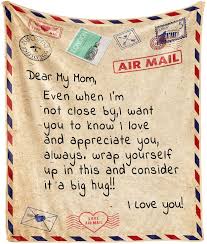 AIR MAIL
Dear My Mom,
Even when I'm
not close by,I want
you to know I love
and appreciate you,
always, wrap yourself
up in this and consider
it a big hug!!
I love you!